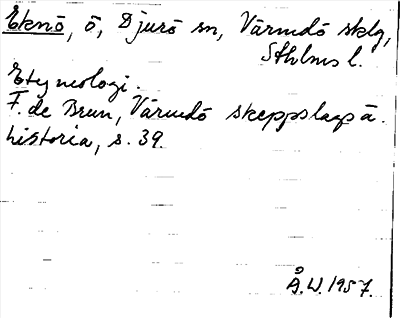 Eknö, ö, Djurö sn, Värmdö sklg,
Sthlms l.
Etymologi.
F. de Brun, Värmdö skeppslags ä.
historia, s. 39.
Å.W. 1957.